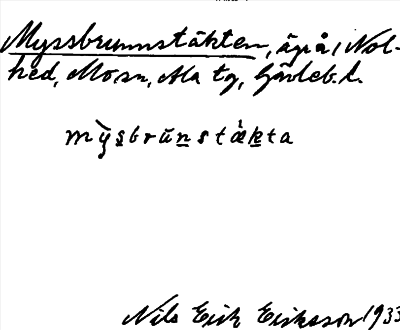 Myssbrunnstäkten, äga å, Nol-
hed, Mo sn, Ala tg, Gävleb. l.
mỳsbrŭnstæ̀kta
Nils Erik Eriksson 1933